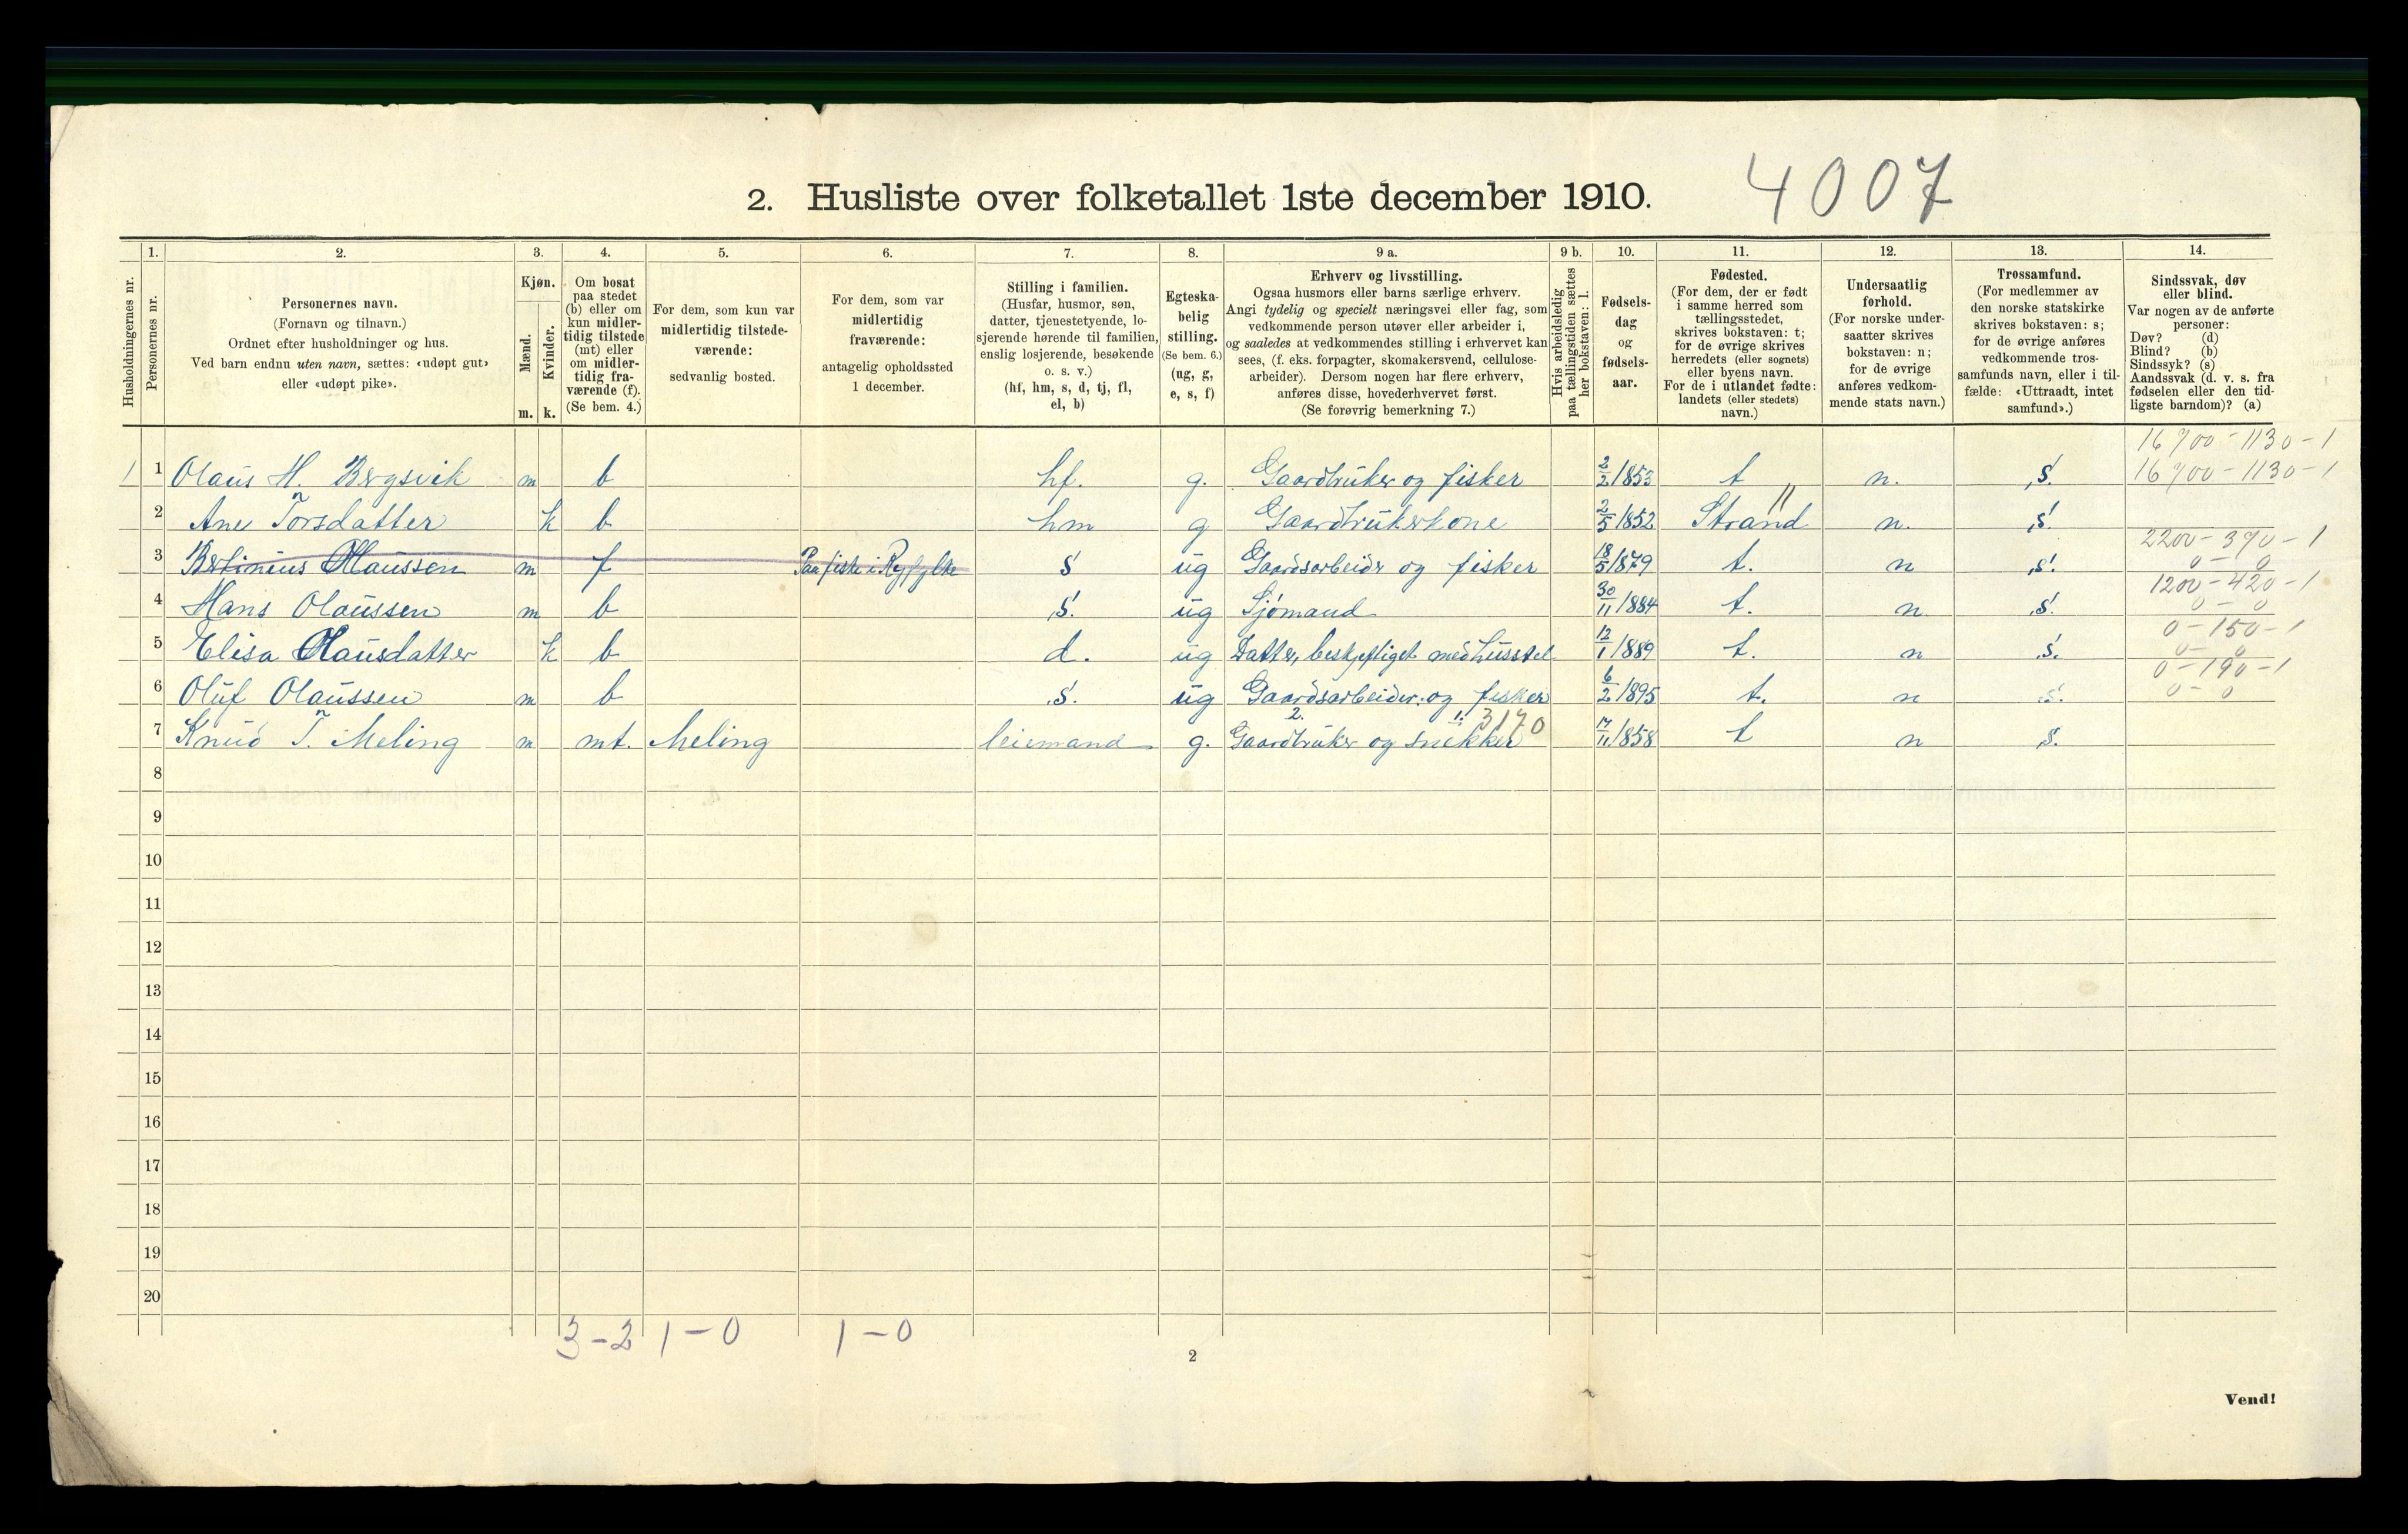 2. Husliste over folketallet 1ste december 1910. 4007
Husholdningernes nr.
1.
Personernes nr.
2.
Personernes navn.
(Fornavn og tilnavn.)
Ordnet efter husholdninger og hus.
Ved barn endnu uten navn, sættes: «udøpt gut»
eller «udøpt pike».
3.
Kjøn.
Mænd.
Kvinder.
m. k.
4.
Om bosat
paa stedet
(b) eller om
kun midler-
tidig tilstede
(mt) eller
om midler-
tidig fra-
værende (f).
(Se bem. 4.)
5.
For dem, som kun var
midlertidig tilstede-
værende:
sedvanlig bosted.
6.
For dem, som var
midlertidig
fraværende:
antagelig opholdssted
1 december.
7.
Stilling i familien.
(Husfar, husmor, søn,
datter, tjenestetyende, lo-
sjerende hørende til familien,
enslig losjerende, besøkende
o. s. v.)
(hf, hm, s, d, tj, fl,
el, b)
8.
Egteska-
belig
stilling.
(Se bem. 6.)
(ug, g,
e, s, f)
9 a.
Erhverv og livsstilling.
Ogsaa husmors eller barns særlige erhverv.
Angi tydelig og specielt næringsvei eller fag, som
vedkommende person utøver eller arbeider i,
og saaledes at vedkommendes stilling i erhvervet kan
sees, (f. eks. forpagter, skomakersvend, cellulose-
arbeider). Dersom nogen har flere erhverv,
anføres disse, hovederhvervet først.
(Se forøvrig bemerkning 7.)
9 b.
Hvis arbeidsledig
paa tællingstiden sættes
her bokstaven: l.
10.
Fødsels-
dag
og
fødsels-
aar.
11.
Fødested.
(For dem, der er født
i samme herred som
tællingsstedet,
skrives bokstaven: t;
for de øvrige skrives
herredets (eller sognets)
eller byens navn.
For de i utlandet fødte:
landets (eller stedets)
navn.)
12.
Undersaatlig
forhold.
(For norske under-
saatter skrives
bokstaven: n;
for de øvrige
anføres vedkom-
mende stats navn.)
13.
Trossamfund.
(For medlemmer av
den norske statskirke
skrives bokstaven: s;
for de øvrige anføres
vedkommende tros-
samfunds navn, eller i til-
fælde: «Uttraadt, intet
samfund».)
14.
Sindssvak, døv
eller blind.
Var nogen av de anførte
personer:
Døv? (d)
Blind? (b)
Sindssyk? (s)
Aandssvak (d. v. s. fra
fødselen eller den tid-
ligste barndom)? (a)
16700 - 1130 - 1
1 1 Olaus H. Bergsvik m b hf. g. Gaardbruker og fisker 2/2 1853 t n. s. 16700 - 1130 - 1
2 Ane Torsdatter k b hm g Gaardbrukerkone 2/5 1852 Strand 11 n. s.
2200 - 390 - 1
3 Bertinius Olaussen m f Paa fiske i Ryfylke s ug Gaardsarbeider og fisker 18/5 1879 t. n s. 0 - 0
1200 - 420 - 1
4 Hans Olaussen m b s. ug Sjømand 30/11 1884 t. n. s. 0 - 0
0 - 150 - 1
5 Elisa Olausdatter k b d. ug Datter, beskjeftiget med husstel 12/1 1889 t. n s. 0 - 0
0 - 190 - 1
6 Oluf Olaussen m b s. ug Gaardsarbeider og fisker 6/2 1895 t. n s. 0 - 0
2. 1. 3170
7 Knud T. Meling m mt. Meling leiemand g. Gaardbruker og snekker 17/11 1858 t n s.
8
9
10
11
12
13
14
15
16
17
18
19
20
3-2 1-0 1-0
2
Vend!